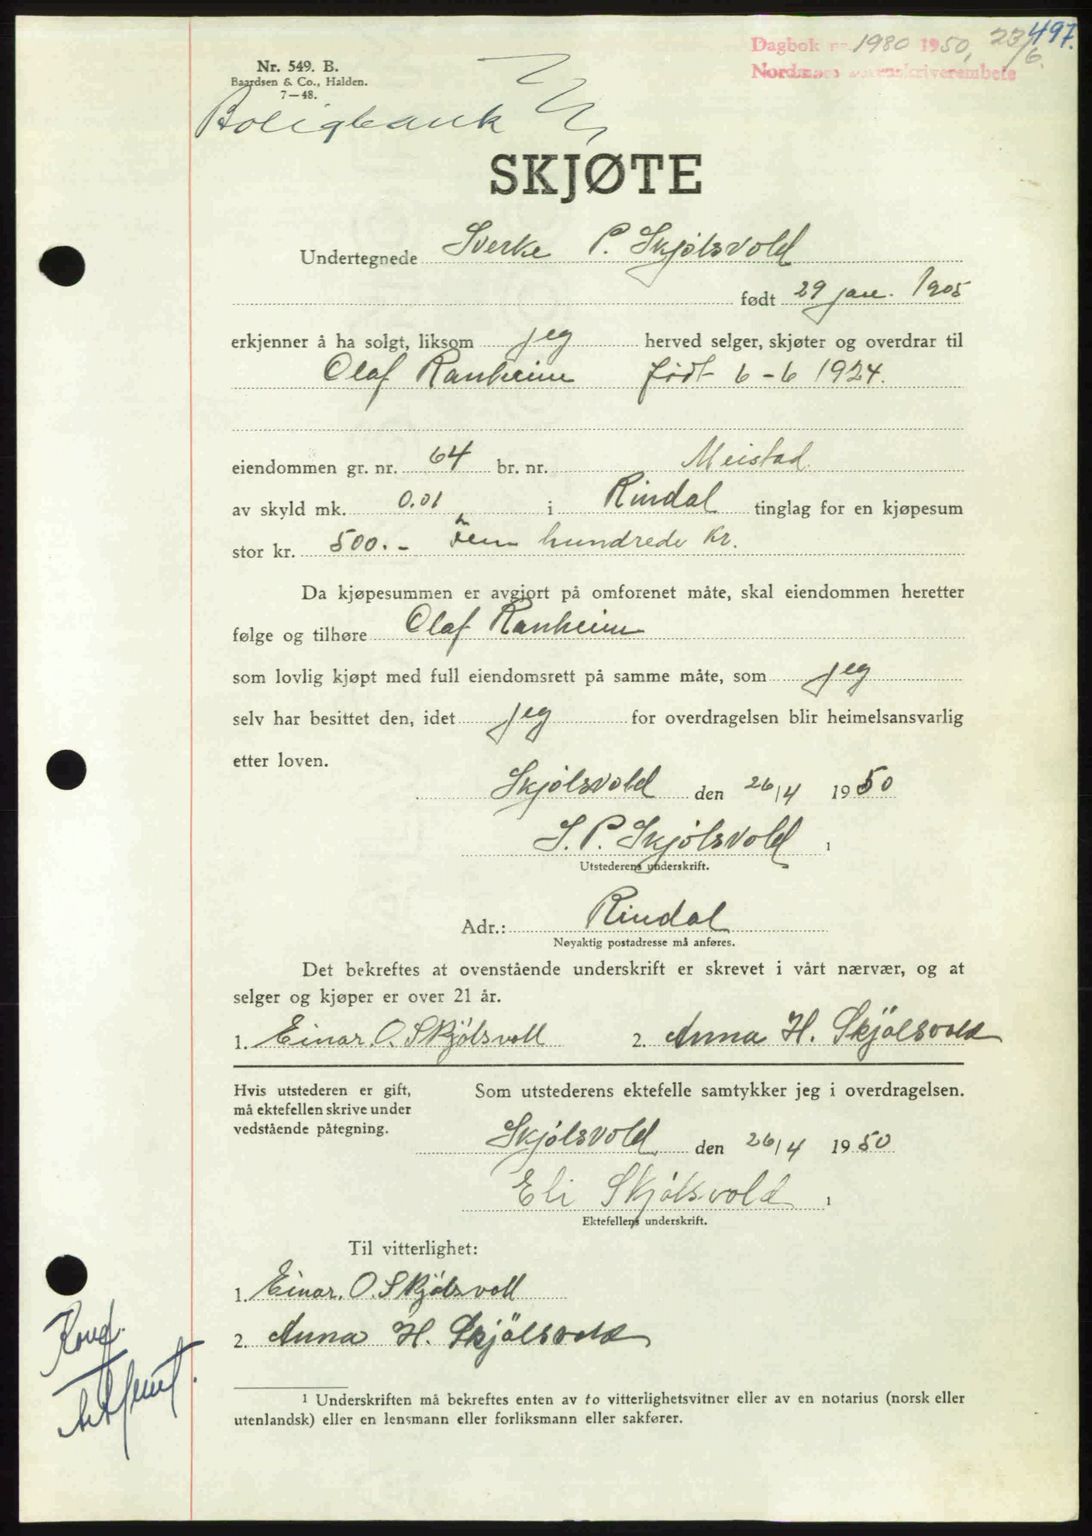 497.
Dagbok nr. 1980 1950, 23/6.
Nordmøre sorenskriverembete
Nr. 549. B.
Baardsen & Co., Halden.
7—48.
Boligbank
SKJØTE
Undertegnede Sverke P. Skjølsvold
født 29 jan. 1905
erkjenner å ha solgt, liksom jeg herved selger, skjøter og overdrar til
Olaf Ranheim født 6-6 1924.
eiendommen gr. nr. 64 br. nr. Meistad
av skyld mk. 0.01 i Rindal tinglag for en kjøpesum
stor kr. 500.- Fem hundrede kr.
Da kjøpesummen er avgjort på omforenet måte, skal eiendommen heretter
følge og tilhøre Olaf Ranheim
som lovlig kjøpt med full eiendomsrett på samme måte, som jeg
selv har besittet den, idet jeg for overdragelsen blir heimelsansvarlig
etter loven.
Skjølsvold den 26/4 1950
S. P. Skjølsvold 1
Utstederens underskrift.
Adr.: Rindal
Nøyaktig postadresse må anføres.
Det bekreftes at ovenstående underskrift er skrevet i vårt nærvær, og at
selger og kjøper er over 21 år.
1. Einar O. Skjølsvoll 2. Anna H. Skjølsvold
Hvis utstederen er gift,
må ektefellen skrive under
vedstående påtegning.
Som utstederens ektefelle samtykker jeg i overdragelsen.
Skjølsvold den 26/4 1950
Eli Skjølsvold 1
Ektefellens underskrift.
Til vitterlighet:
1. Einar. O. Skjølsvoll
2. Anna H. Skjølsvold
1 Underskriften må bekreftes enten av to vitterlighetsvitner eller av en notarius (norsk eller
utenlandsk) eller en lensmann eller forliksmann eller sakfører.